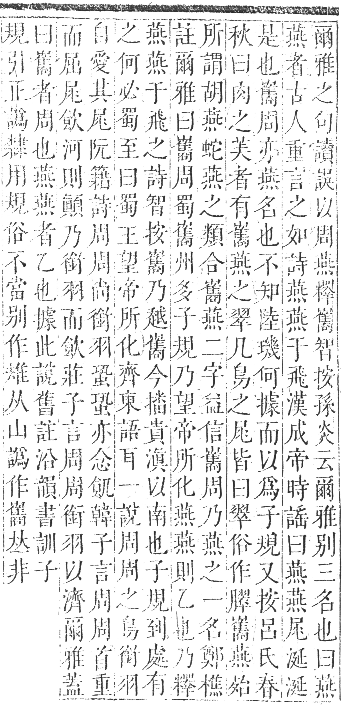 爾雅之句讀誤以周燕釋巂智按孫炎云爾雅别三名也曰燕
燕者古人重言之如詩燕燕于飛漢成帝時謠曰燕燕尾涎涎
是也巂周亦燕名也不知陸璣何據而以爲子規又按呂氏春
秋曰肉之美者有巂燕之翠几鳥之尾皆曰翠俗作臎巂燕始
所謂胡燕蛇燕之類合巂燕二字益信巂周乃燕之一名鄭樵
註爾雅曰巂周蜀巂州多子規乃望帝所化燕燕則乙也乃釋
燕燕于飛之詩智按巂乃越巂今播貴滇以南也子規到處有
之何必蜀至曰蜀王望帝所化齊東語耳一說周周之鳥銜羽
自愛其尾阮籍詩周周尚銜羽蛩蛩亦念飢韓子言周周首重
而屈尾飲河則顛乃銜羽而飲莊子言周周銜羽以濟爾雅蓋
曰巂者周也燕燕者乙也據此說舊註沿韻書訓子
規引正譌隸用規俗不當别作雉从山譌作巂𠀤非